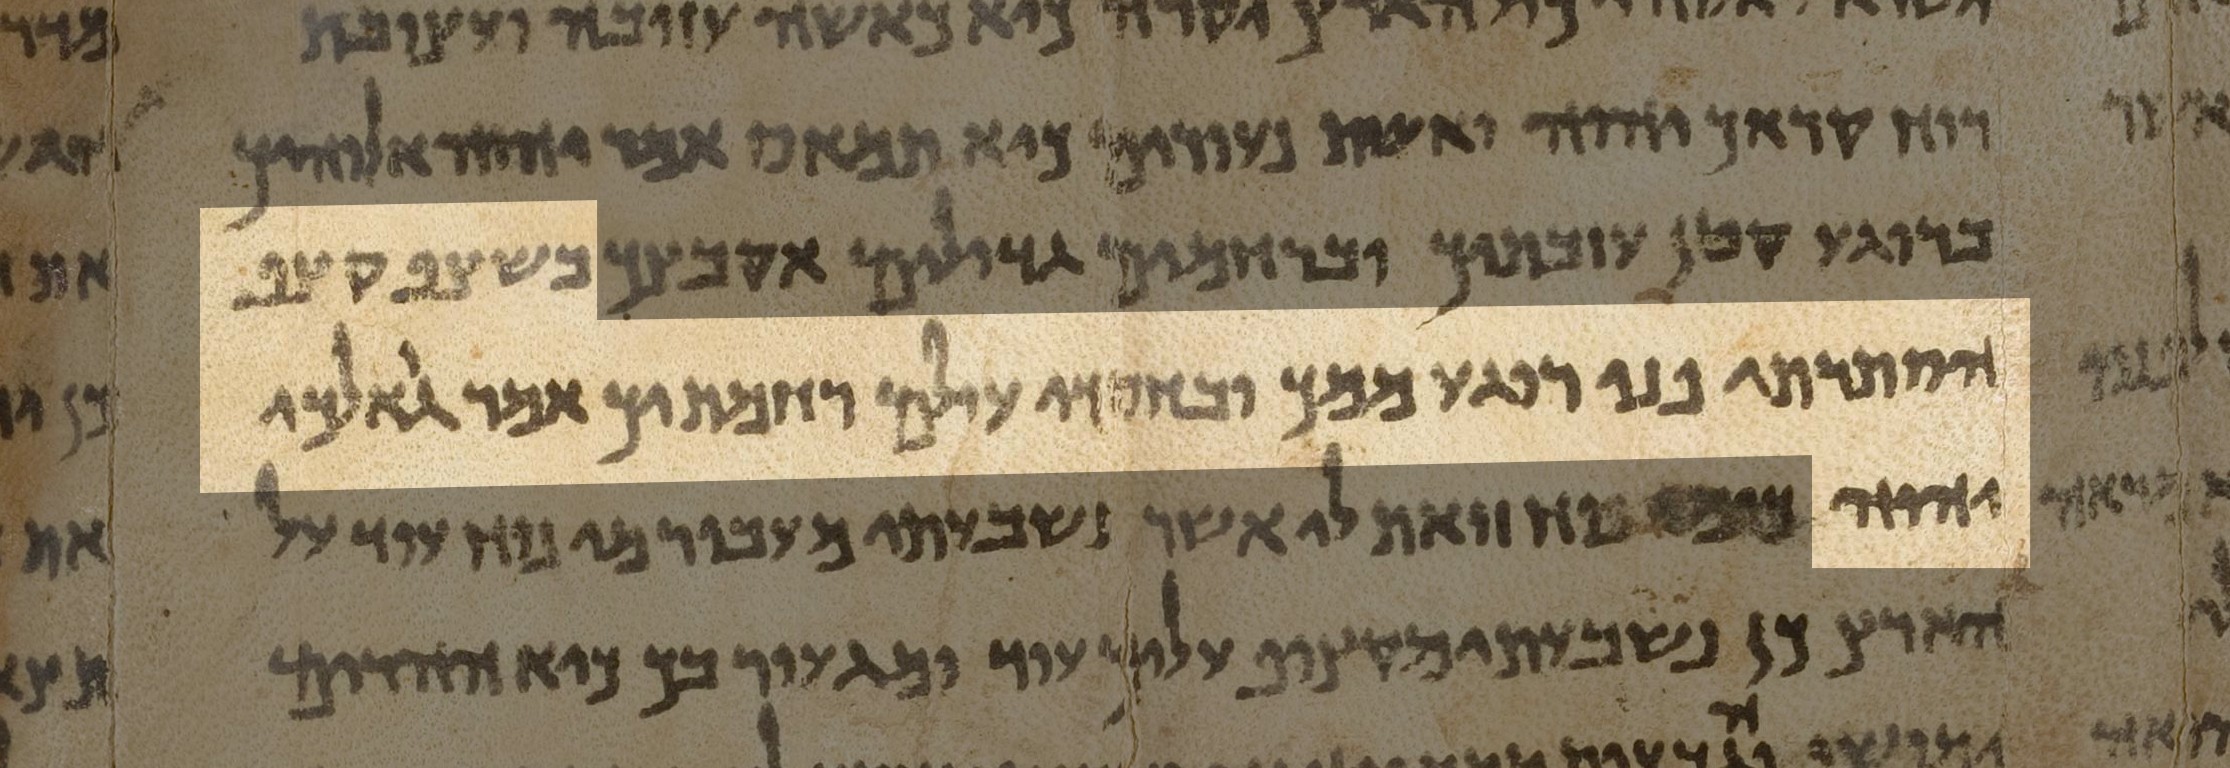 הארץ יקרה כיא כאשה עזובה ועצובת
רוח קראך יהוה ואשת נעורים כיא תמאס אמר יהוה אלוהיך
ברוגע קטן עזבתיך וברחמים גדולים אקבצך בשצף קצף
הסתרתי פני רוגע ממך ובחסדי עולם רחמתיך אמר גאלכי
יהוה כימי נוח זואת לי אשר נשבעתי מעבור מי נוח עוד על
הארץ כן נשבעתי מקצוף עליך עוד ומגעור בך כיא ההרים